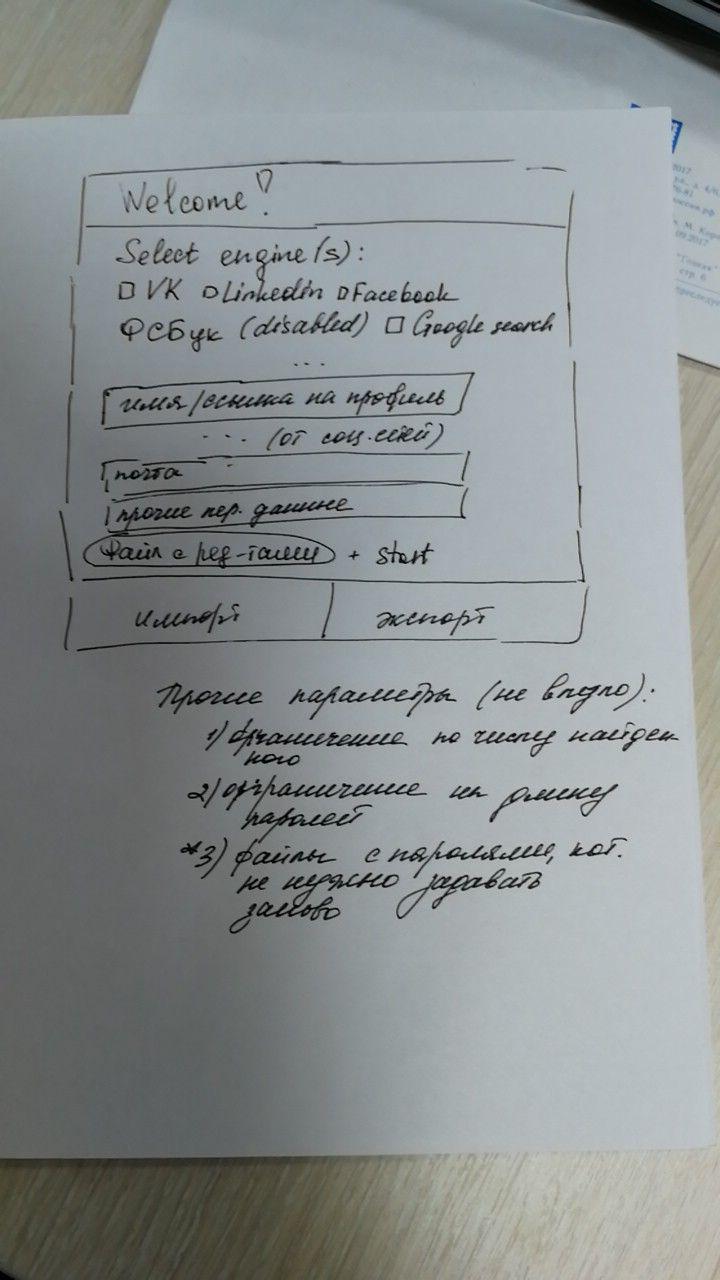 Welcome!
Select engine(s):
VK Linkedin Facebook
ФСБук (disabled) Google search
...
имя/ссылка на профиль
... (от соц.сетей)
почта
прочие пер. данные
Файл с рез-тами + Start
импорт экспорт
Прочие параметры (не влезло):
1) ограничение по числу найден
ного
2) ограничение на длину
паролей
*3) файлы с паролями, кот.
не нужно задавать
заново
2017
09.2017
стр. 6